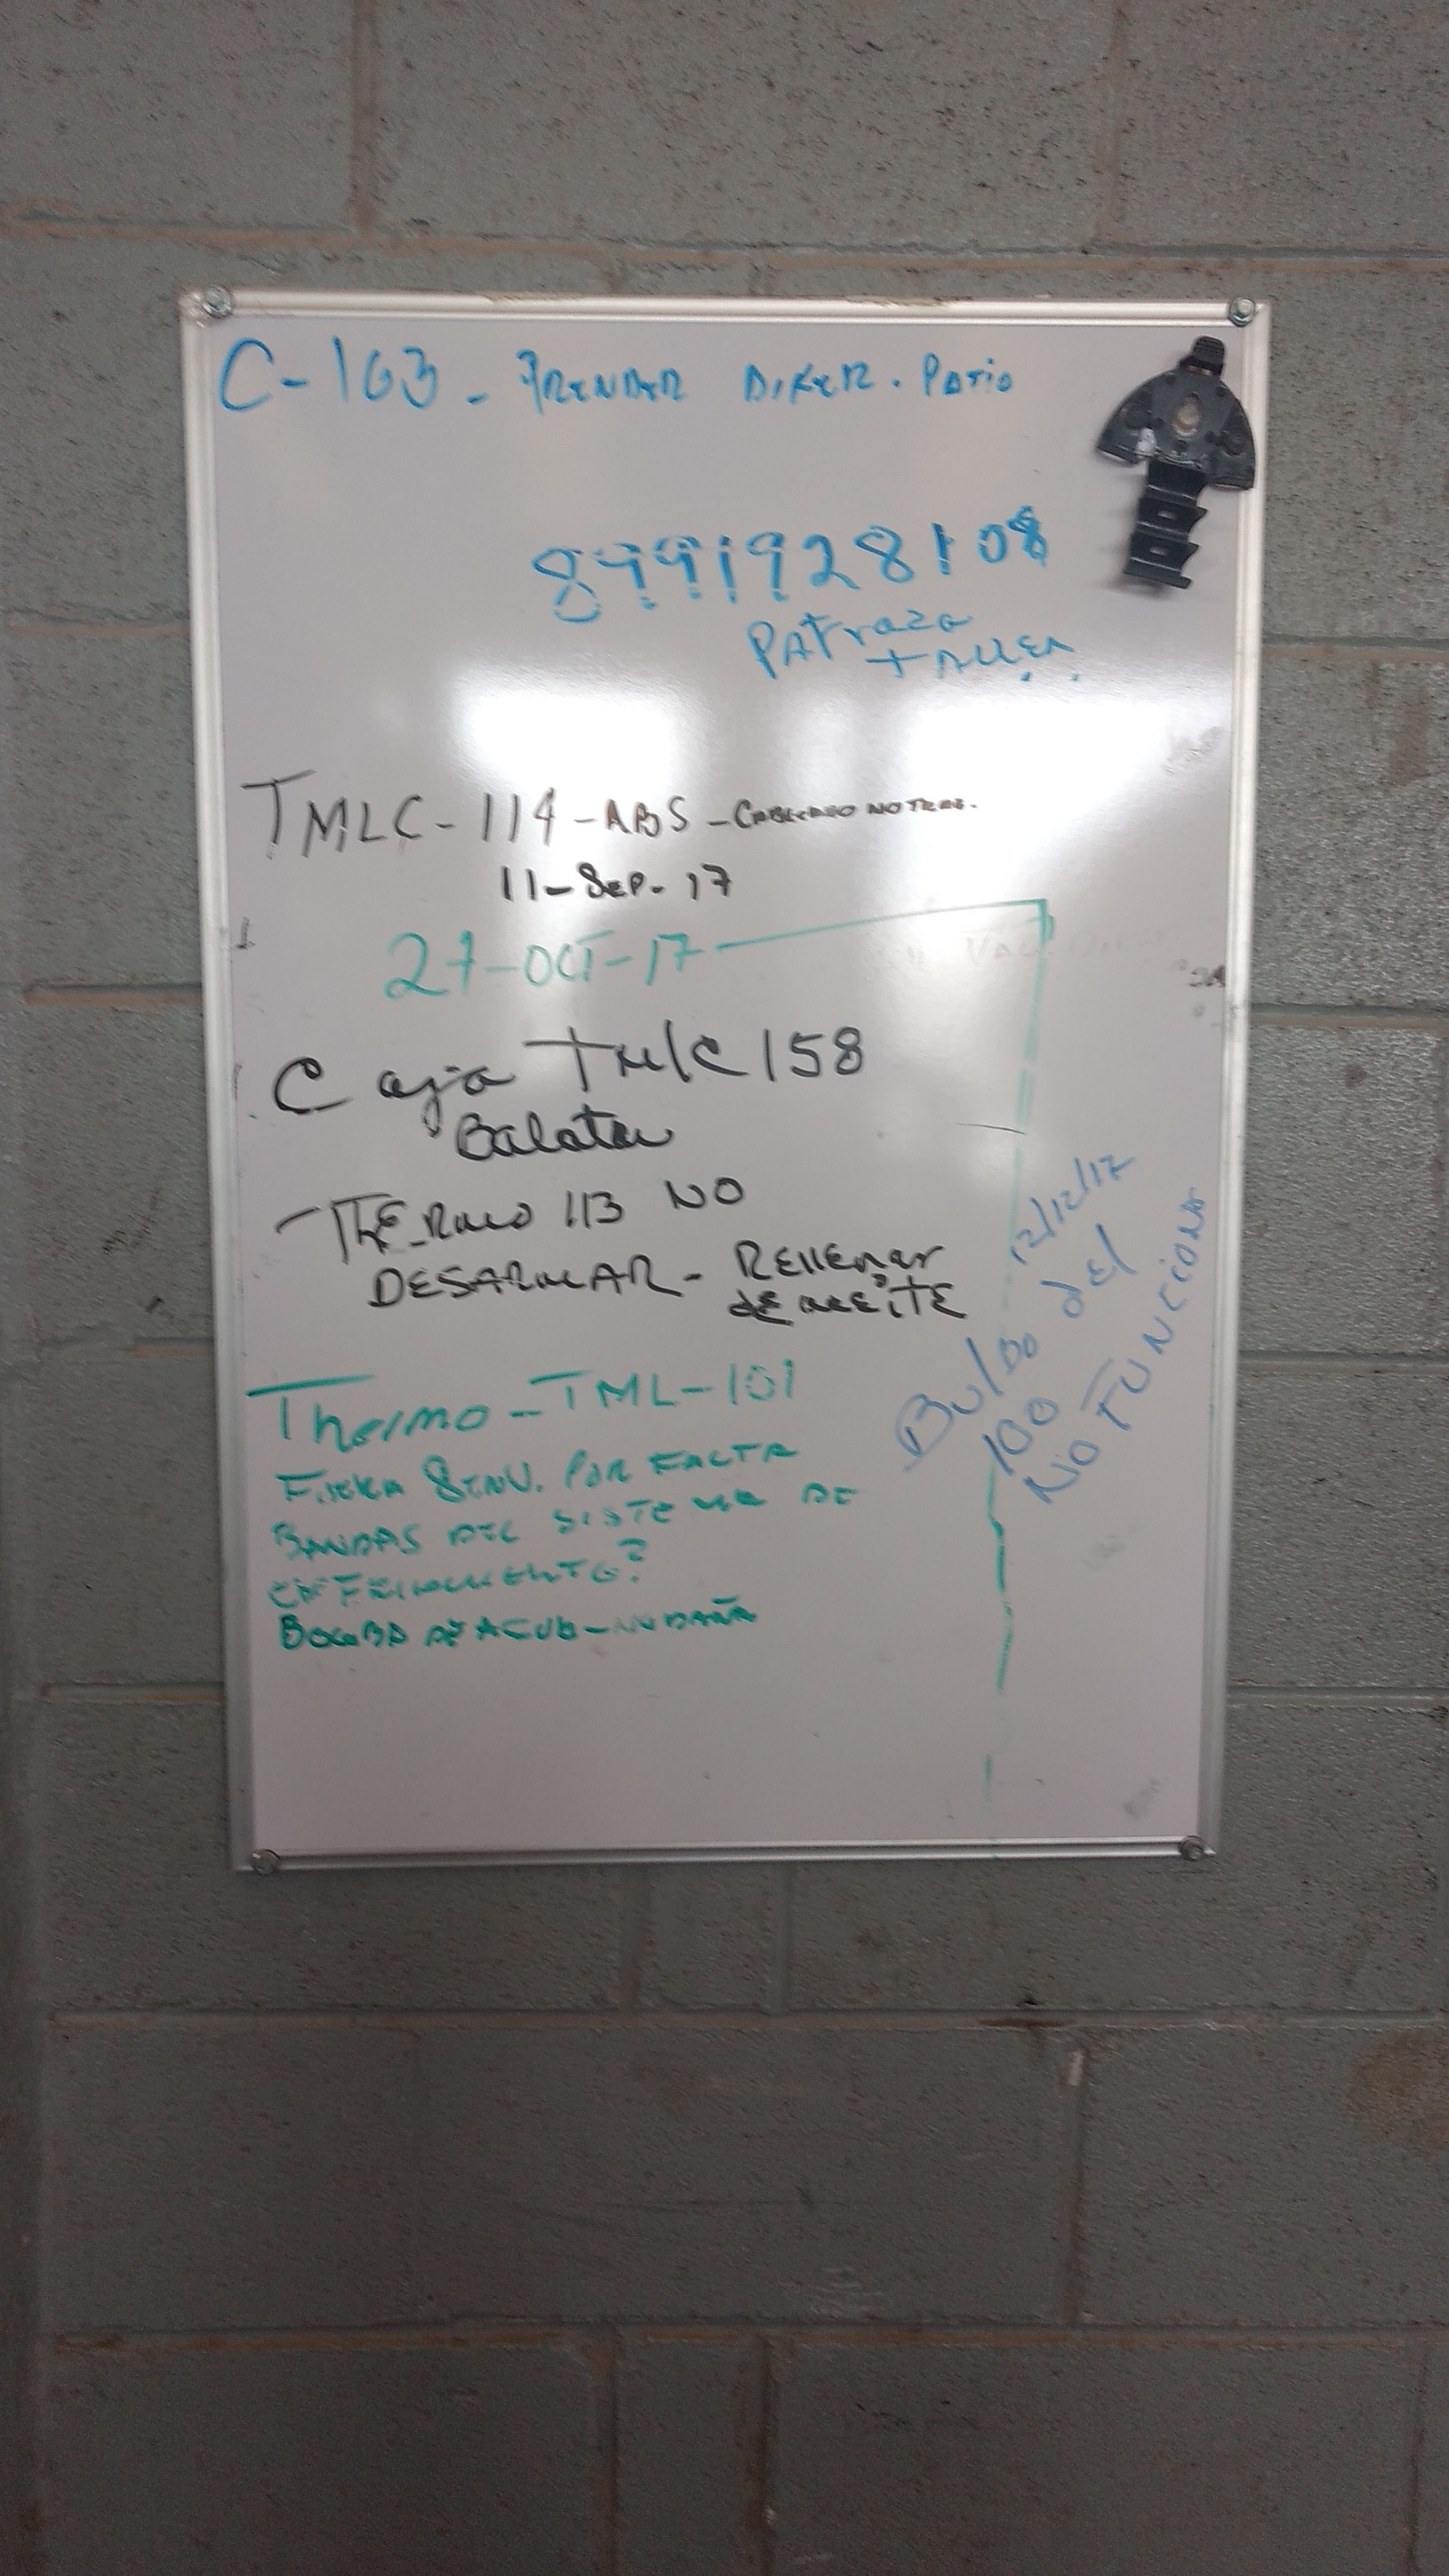 C-163 - PRENDER DIKER. PATIO
89991928108
PATraza
TALLER
TMLC-114-ABS-CABLEADO NO TRAE.
11-SEP-17
27-OCT-17
Caja TMLC 158
Balatas
THERMO 113 NO
DESARMAR - RELLENAR
DE ACEITE
12/12/17
Bulbo del
100
NO FUNCIONA
Thermo-TML-101
FUERA SERV. POR FALTA
BANDAS DEL SISTEMA DE
ENFRIAMIENTO?
BOMBA DE AGUA - NO DAÑA